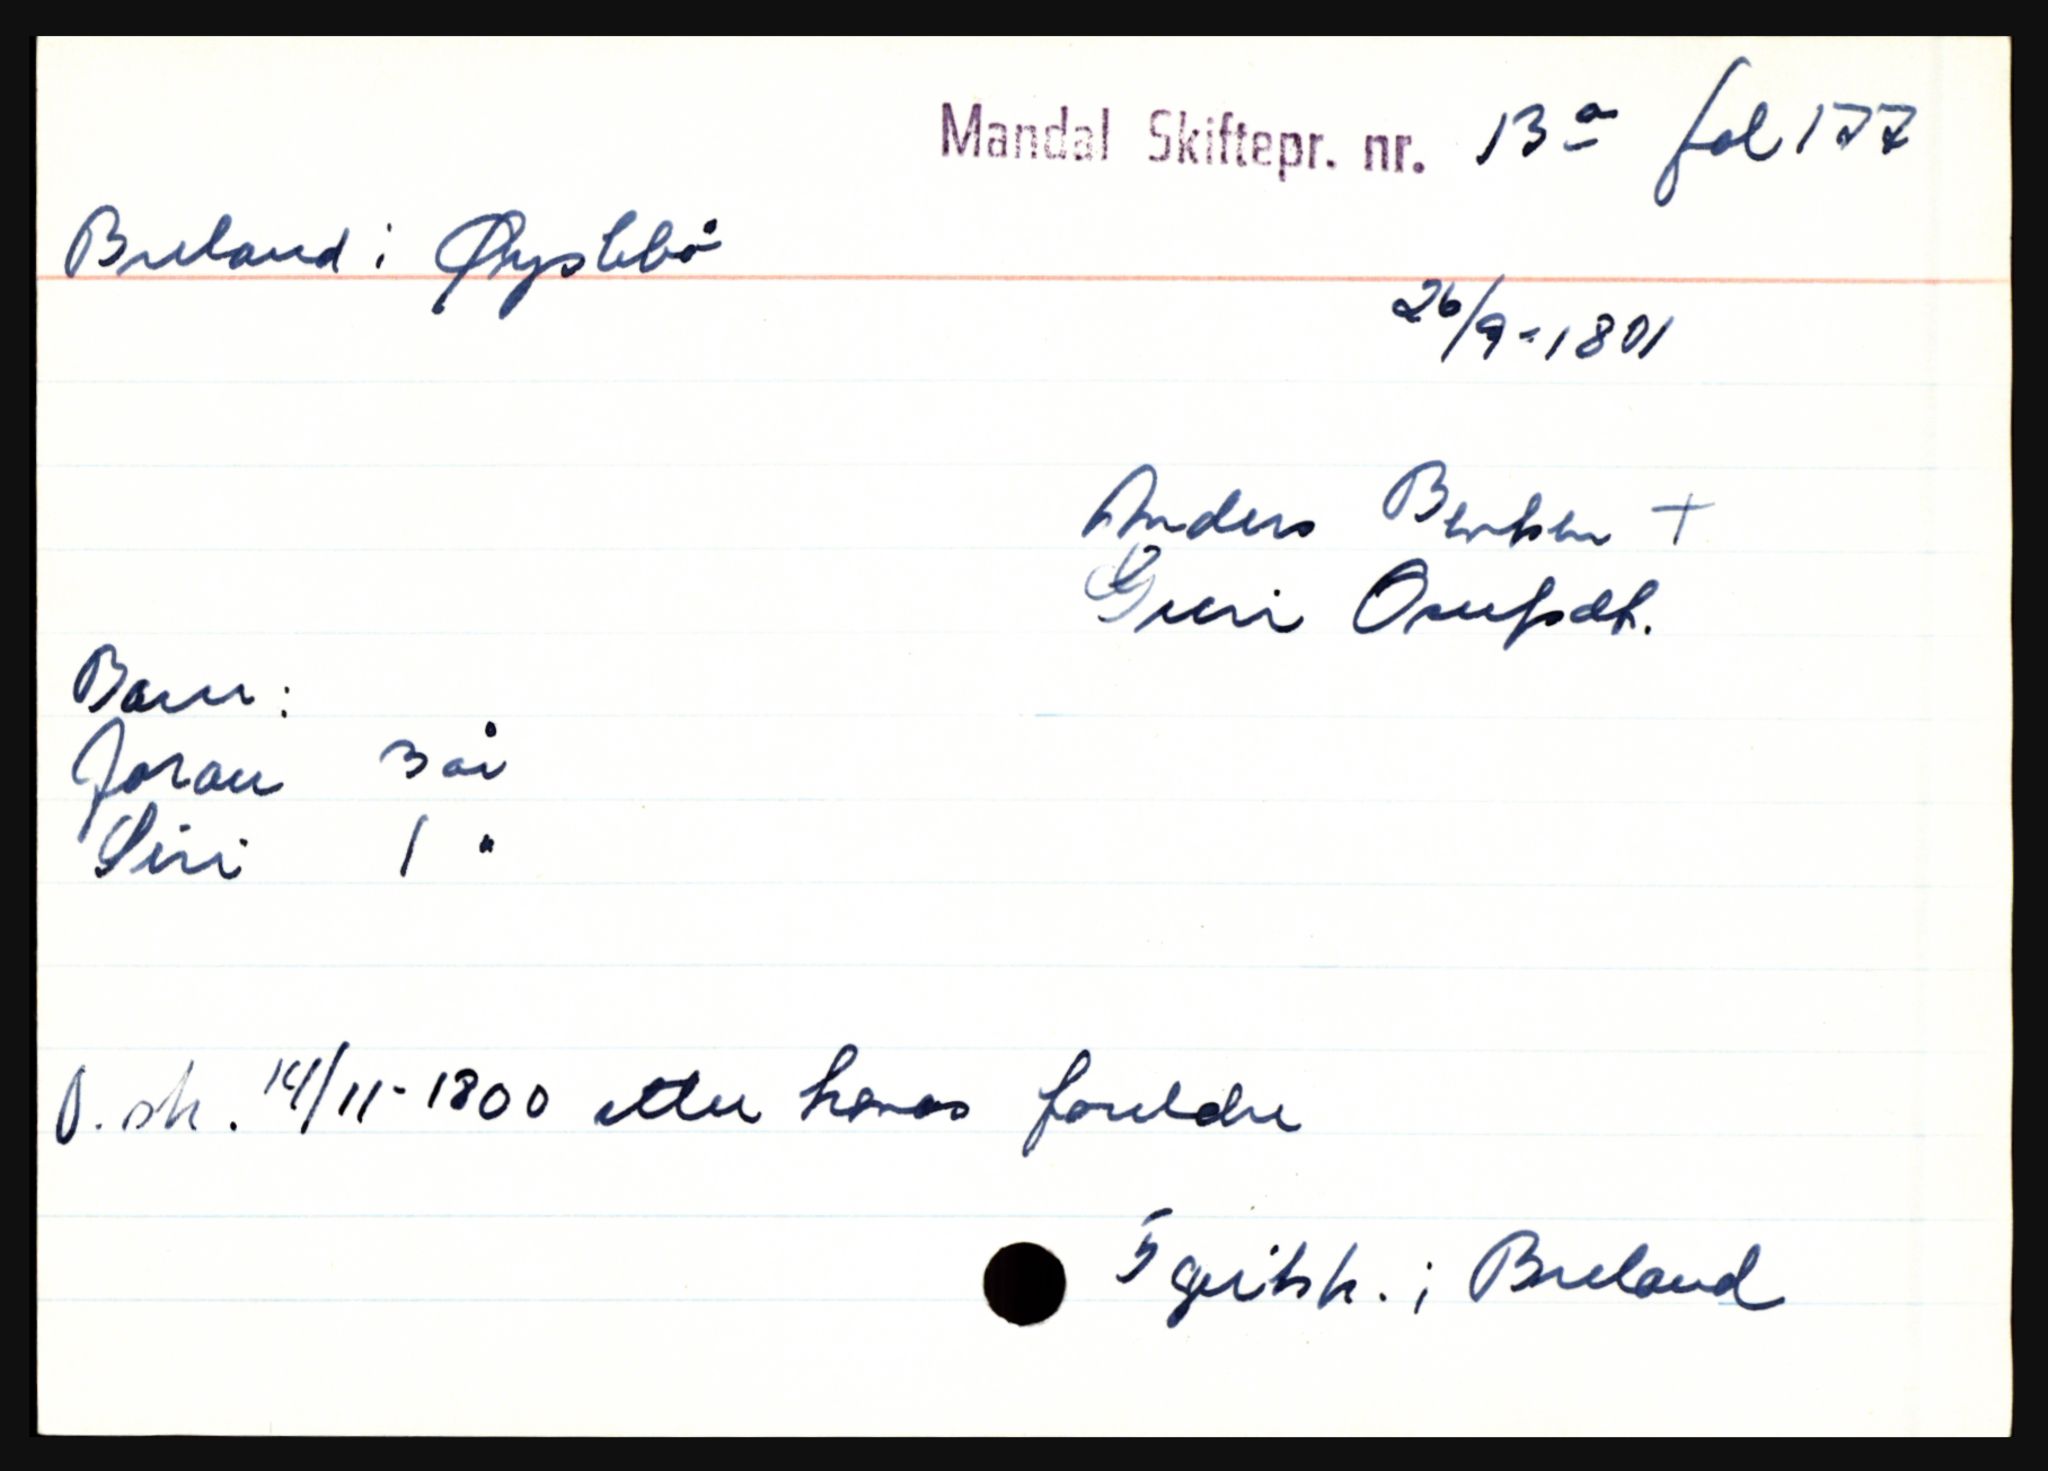 Mandal Skiftepr. nr. 13a fol 177
Breland i Øyslebö
26/9-1801
Anders Berntsen +
Guri Osufsdt.
Barn:
Joran 3 år
Siri 1 "
O. sk. 14/11-1800 etter hanas foreldre
5 geitsk. i Breland